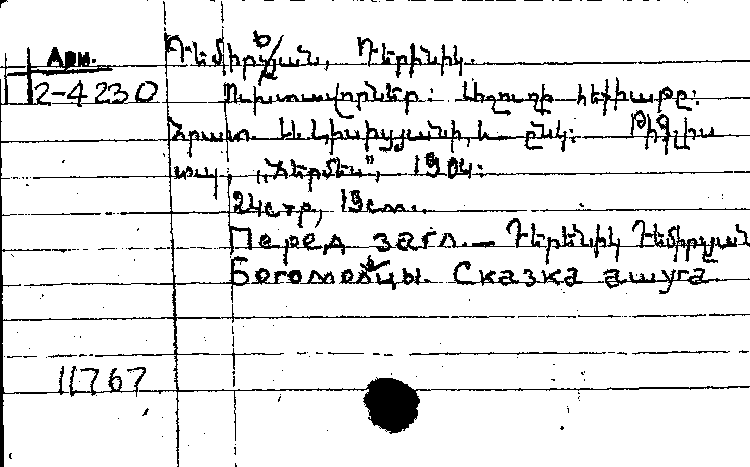 Арм.
2-4230
Դեմիրճյան, Դերինիկ.
Ուխտավորներ: Աշուղի հեքիաթը:
Հրատ. և ընկ: Թիֆլիս
տպ, „Հերմես”, 1904:
24стр, 19см.
Перед загл.— Դերենիկ Դեմիրճյան
Богомольцы. Сказка ашуга
11767